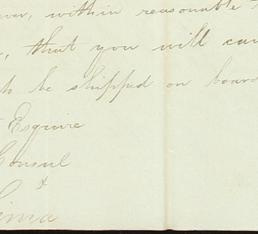 within reasonable
, that you will
be shipped on board
Esquire
Consul